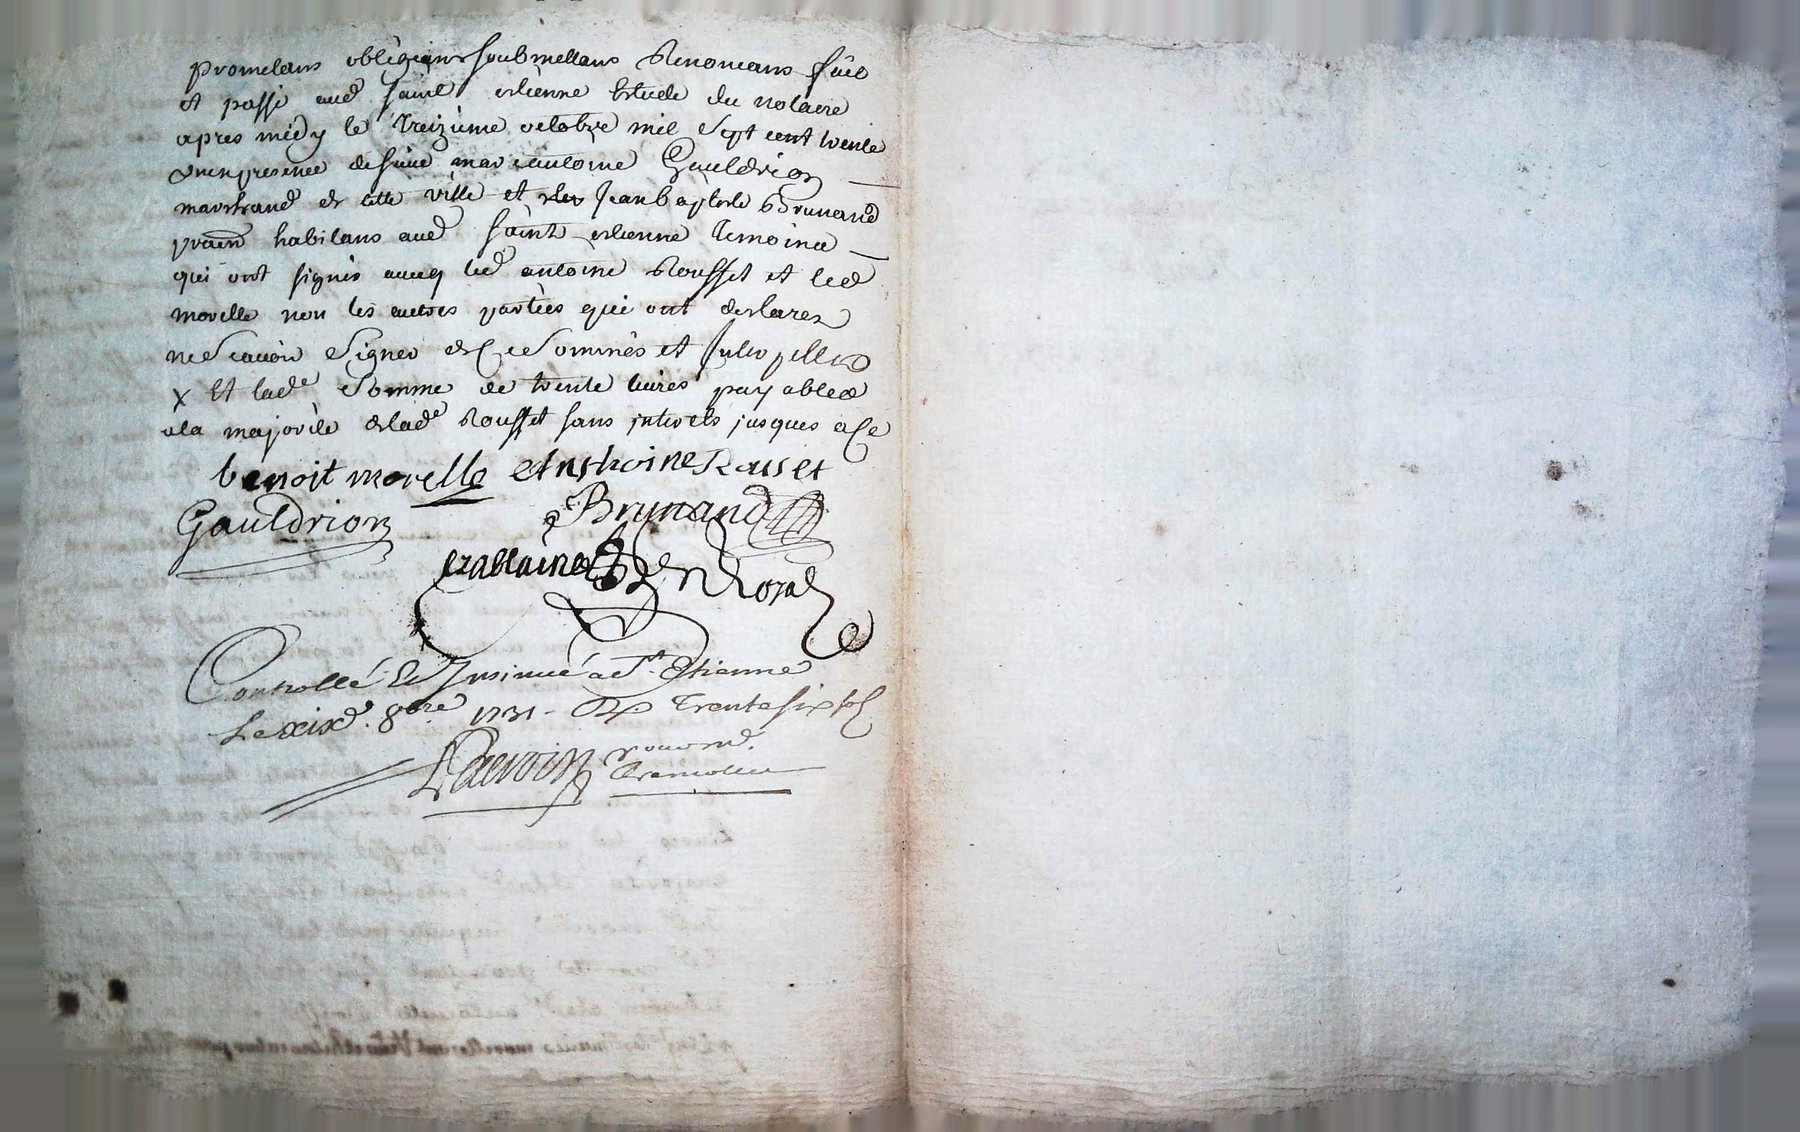 promettans obligeans soubmettans Renonceans faict
et passé aud saint estienne Estude du notaire
apres midy le treizieme octobre mil sept cent trente
un en presence de sieur marcantoine Gauldrion
marchand de cette ville et Jean baptiste Brunand
praen habitans aud saint estienne temoins
qui ont signés avecq led antoine Rousset et led
morelle non les autres parties qui ont declarez
ne scavoir signer de ce sommés et
x Et lade somme de trente livres payables
a la majorité de lade Rousset sans interets jusques a ce
benoit morelle Anthoine Rousset
Gauldrion Brunand
Controllé & Insinué a St Etienne
Le xixe. 8bre 1731 - Rx Trente six sols